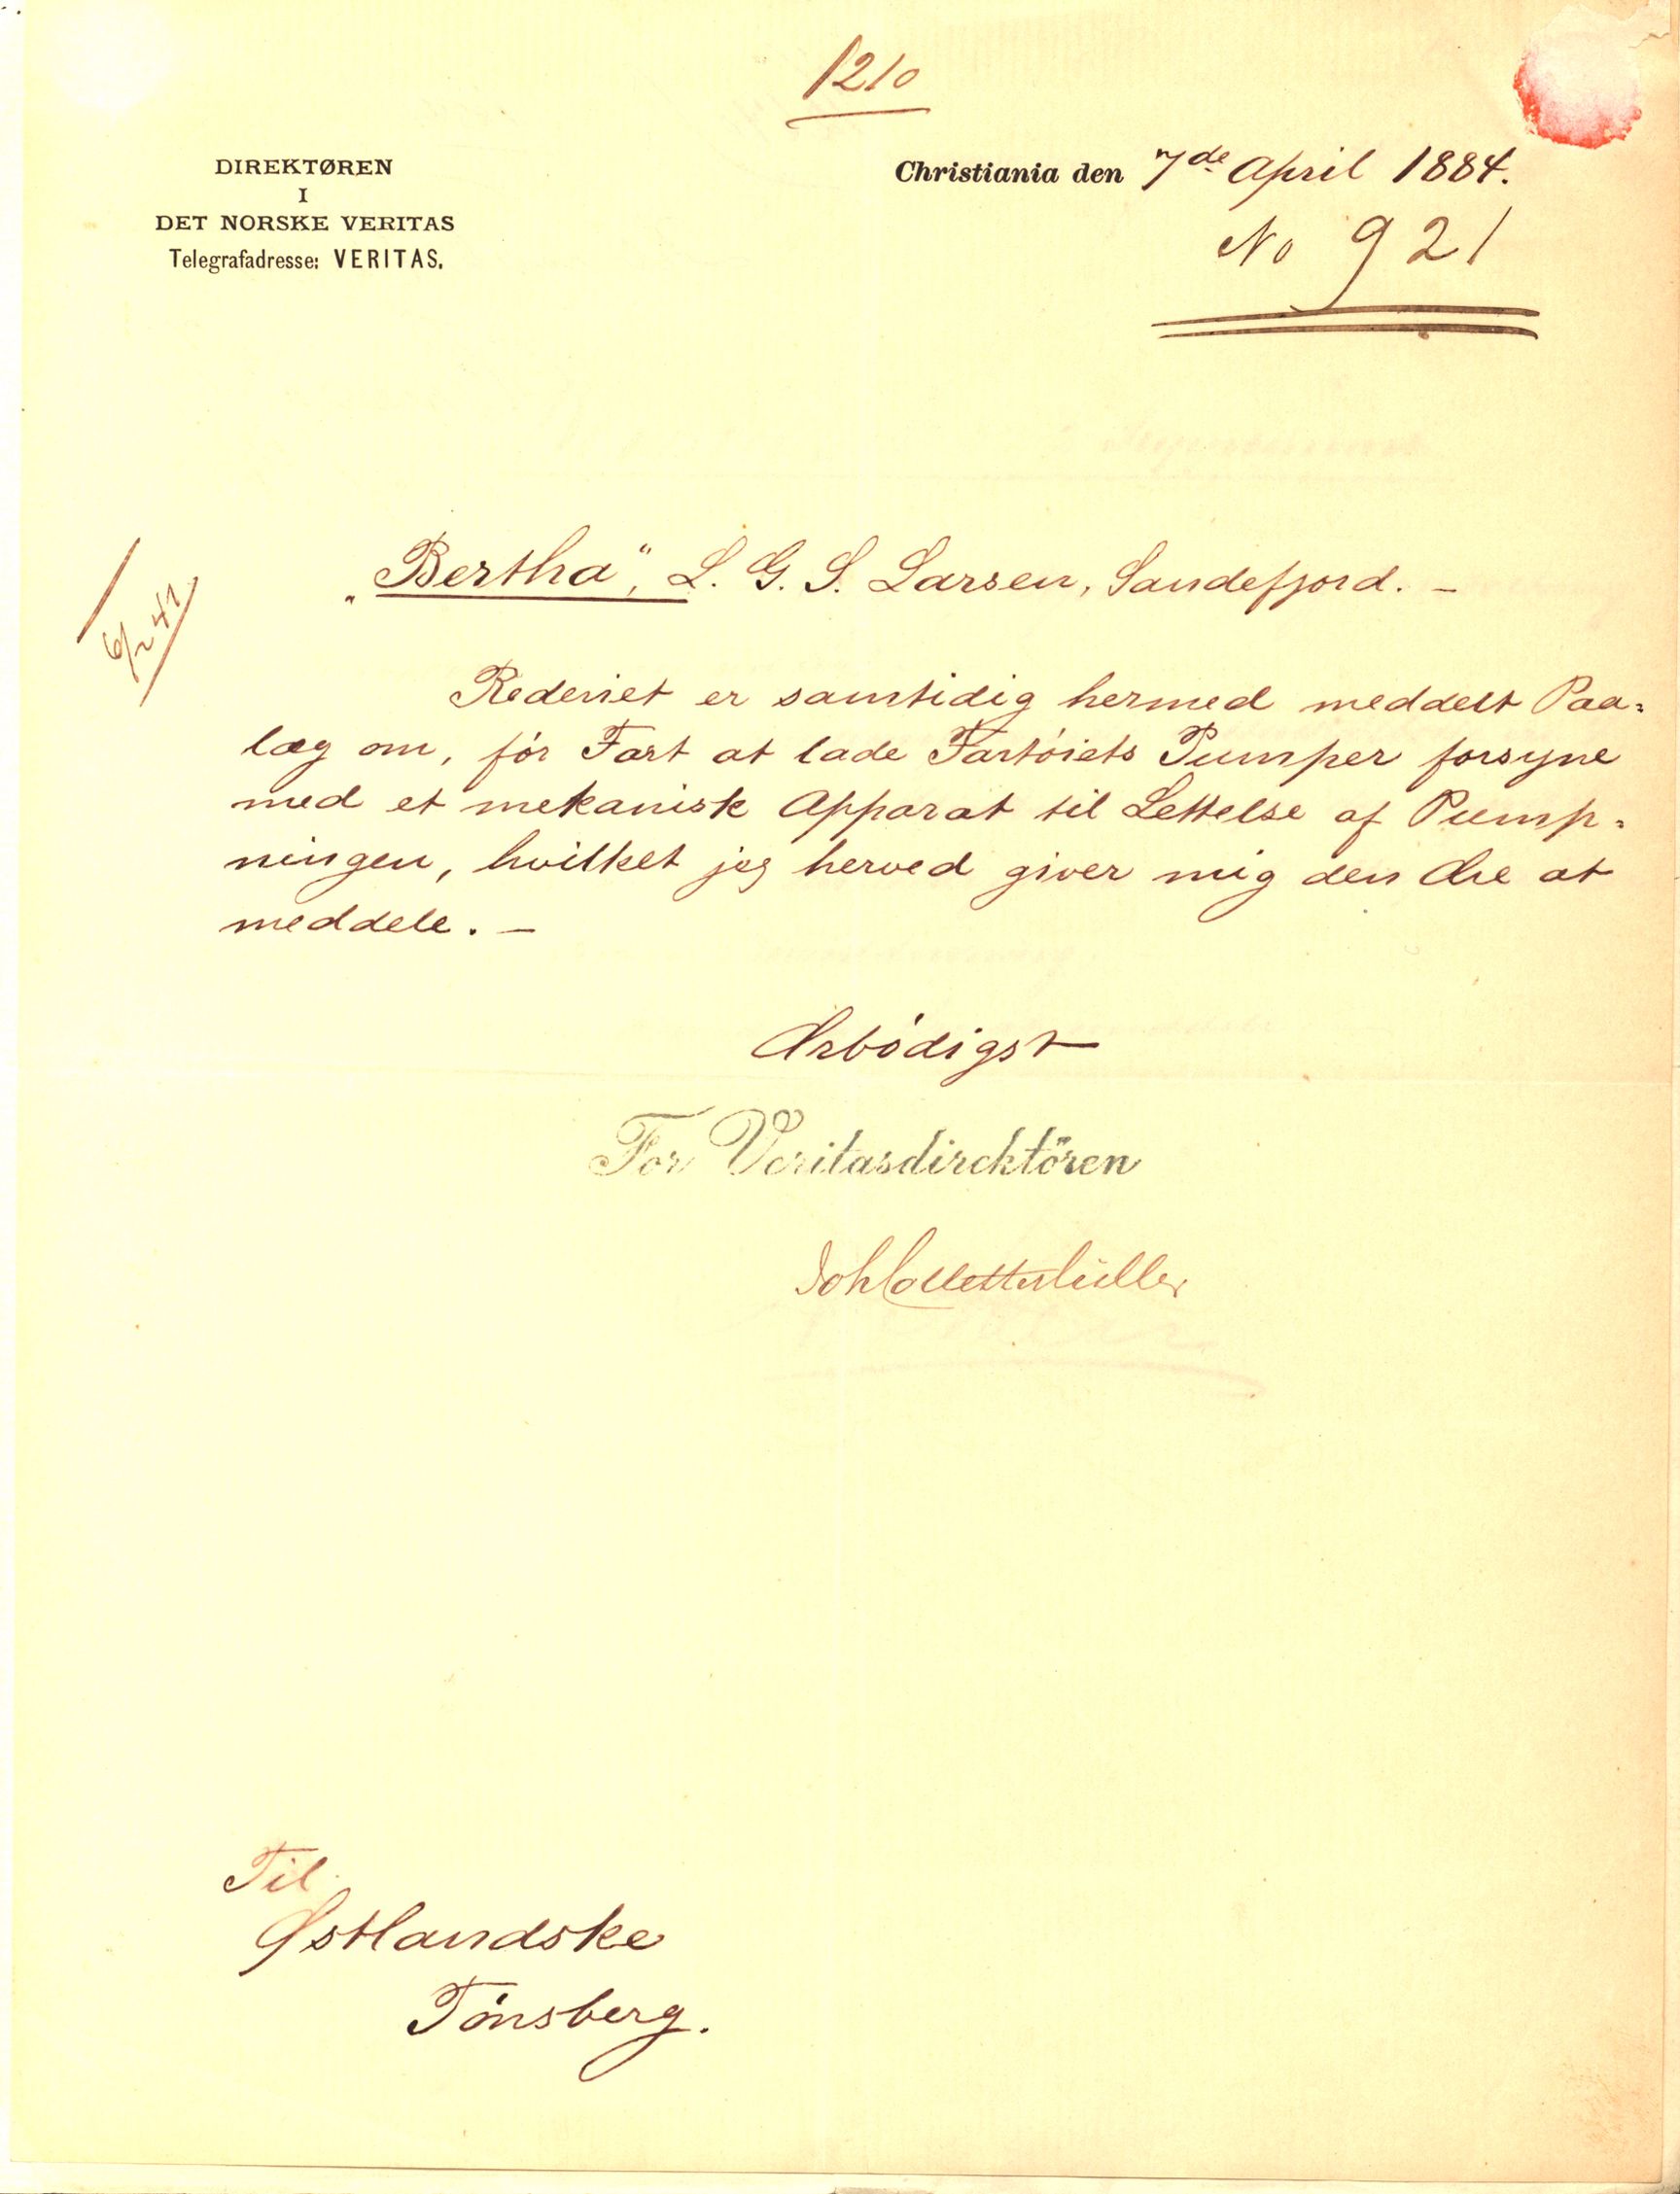 1210
DIREKTØREN
I
DET NORSKE VERITAS
Telegrafadresse: VERITAS.
Christiania den 7de April 1884.
No 921
„Bertha”, L. G. S. Larsen, Sandefjord. –
6/2 41
Rederiet er samtidig hermed meddelt Paa=
læg om, før Fart at lade Fartøiets Pumper forsyne
med et mekanisk Apparat til Lettelse af Pump=
ningen, hvilket jeg herved giver mig den Ære at
meddele. –
Ærbødigst
For Veritasdirektören
Joh Collett Müller
Til
Østlandske
Tönsberg.